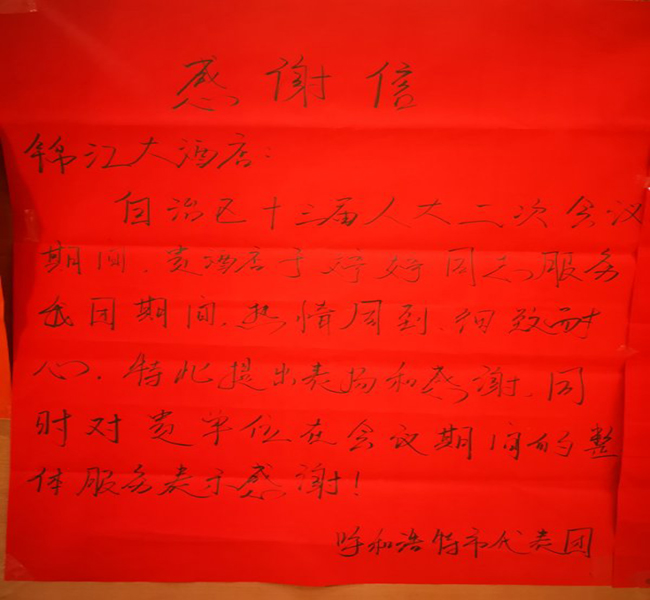 感谢信
锦江大酒店:
自治区十三届人大二次会议
期间,贵酒店于婷婷同志服务
我团期间,热情周到,细致耐
心,特此提出表扬和感谢,同
时对贵单位在会议期间的整
体服务表示感谢!
呼和浩特市代表团